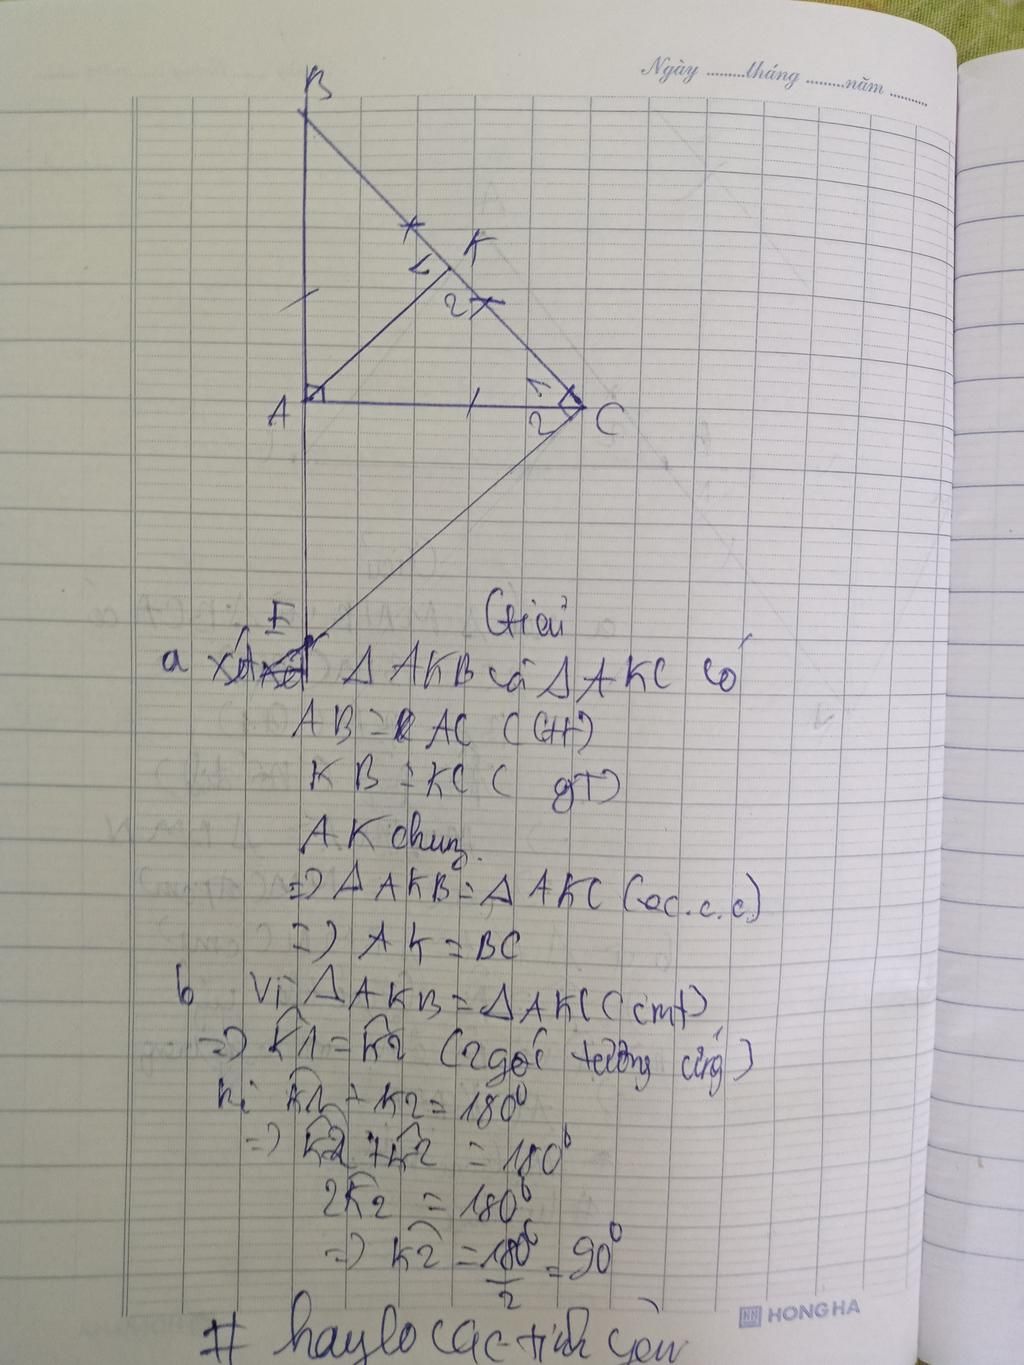 Ngày ........tháng ........năm ........
B
K
1
2
1
A
2
C
E
Giải
a Xét Δ AKB và Δ AKC có
AB = AC (GT)
KB = KC ( gT)
AK chung.
=> Δ AKB = Δ AKC (c.c.c)
=> AK = BC
b Vì Δ AKB = Δ AKC (cmt)
=> K1 = K2 (2 góc tương ứng)
K1 + K2 = 180⁰
=> K2 + K2 = 180⁰
2K2 = 180⁰
=> K2 = 180⁰/2 = 90⁰
HONG HA
# haylocactinhyeu